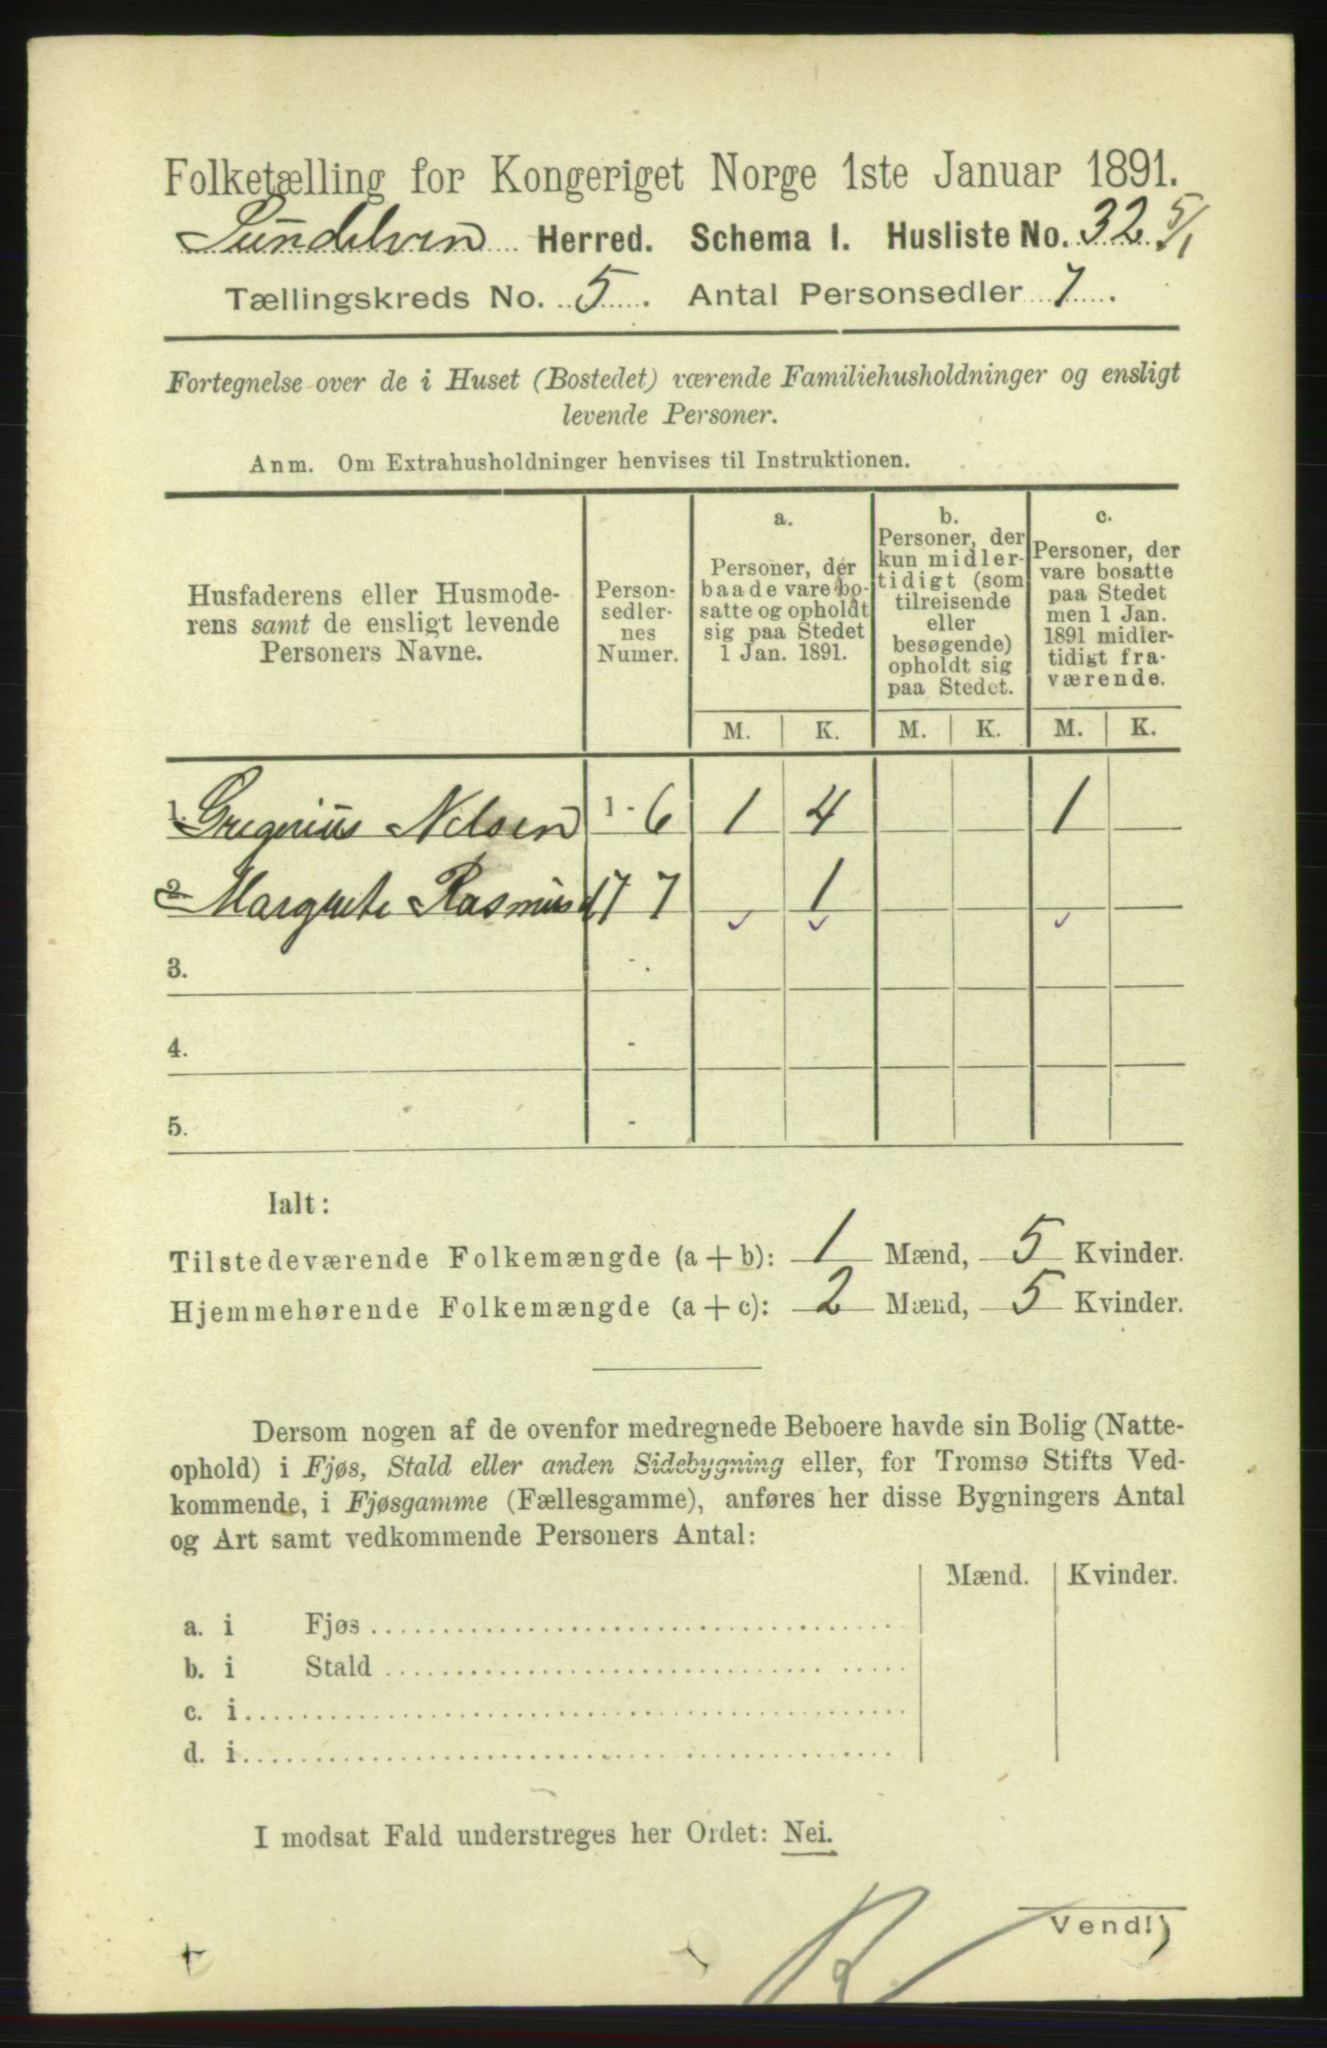 Folketælling for Kongeriget Norge 1ste Januar 1891.
Sündelven Herred. Schema I. Husliste No. 32 5/1
Tællingskreds No. 5. Antal Personsedler 7.
Fortegnelse over de i Huset (Bostedet) værende Familiehusholdninger og ensligt
levende Personer.
Anm. Om Extrahusholdninger henvises til Instruktionen.
Husfaderens eller Husmode-
rens samt de ensligt levende
Personers Navne.
Person-
sedler-
nes
Numer.
a.
Personer, der
baade vare bo-
satte og opholdt
sig paa Stedet
1 Jan. 1891.
b.
Personer, der
kun midler-
tidigt (som
tilreisende
eller
besøgende)
opholdt sig
paa Stedet.
c.
Personer, der
vare bosatte
paa Stedet
men 1 Jan.
1891 midler-
tidigt fra-
værende.
M. K. M. K. M. K.
1. Gregerius Nelsen 1 - 6 1 4 1
2. Margrete Rasmusd 7 7 1
3. - .
4. -
5. -
Ialt:
Tilstedeværende Folkemængde (a + b): 1 Mænd, 5 Kvinder.
Hjemmehørende Folkemængde (a + c): 2 Mænd, 5 Kvinder.
Dersom nogen af de ovenfor medregnede Beboere havde sin Bolig (Natte-
ophold) i Fjøs, Stald eller anden Sidebygning eller, for Tromsø Stifts Ved-
kommende, i Fjøsgamme (Fællesgamme), anføres her disse Bygningers Antal
og Art samt vedkommende Personers Antal:
Mænd. Kvinder.
a. i Fjøs
b. i Stald
c. i
d. i
I modsat Fald understreges her Ordet: Nei.
Vend!